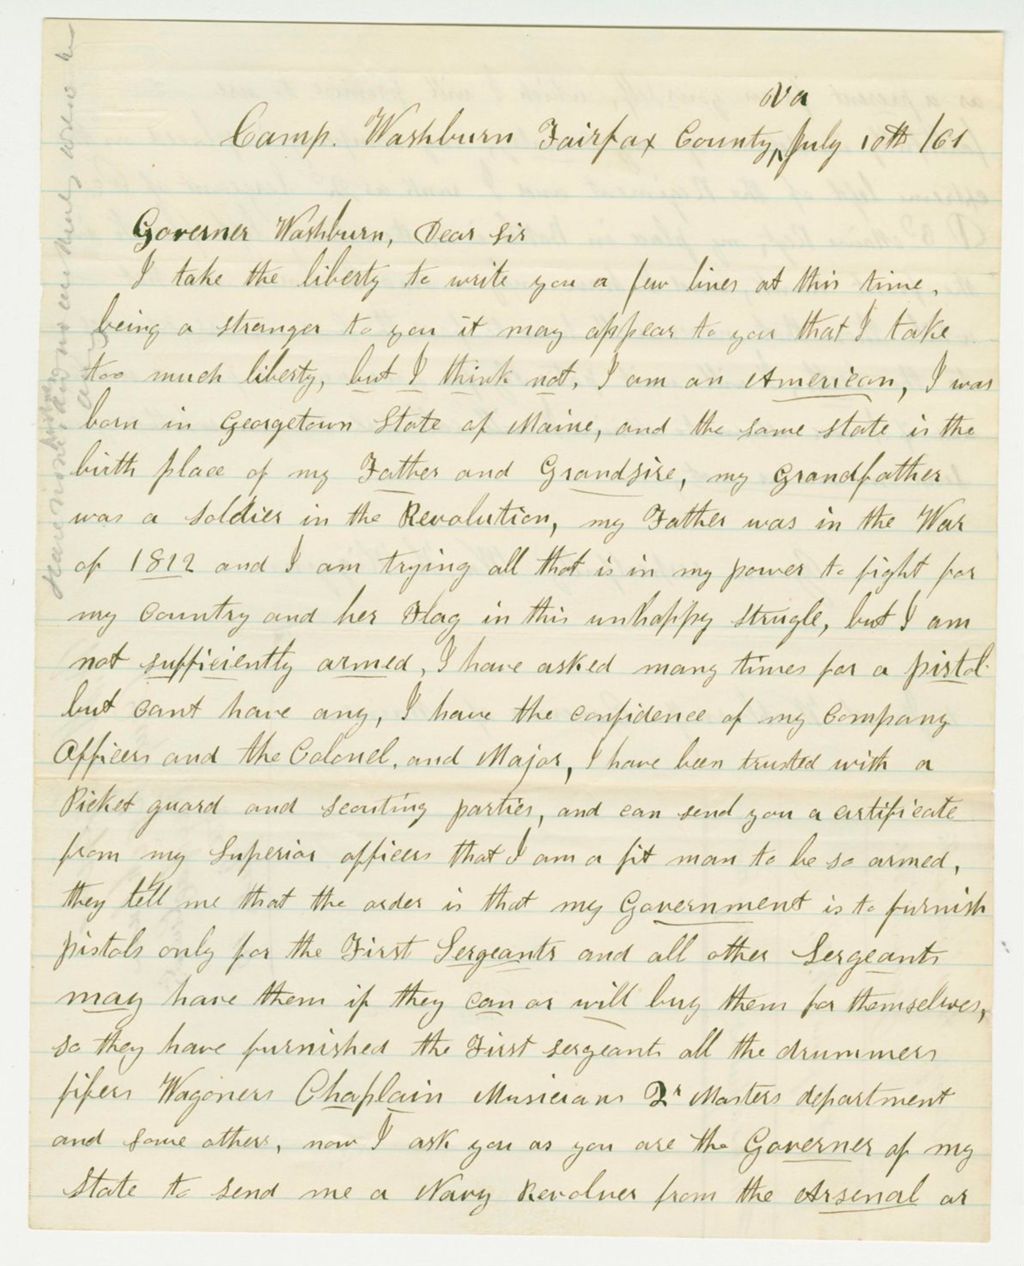 Va
Camp. Washburn Fairfax County, July 10th /61
Governer Washburn, Dear Sir
I take the liberty to write you a few lines at this time,
being a stranger to you it may appear to you that I take
too much liberty, but I think not, I am an American, I was
born in Georgetown State of Maine, and the same state is the
birth place of my Father and Grandsire, my Grandfather
was a Soldier in the Revolution, my Father was in the War
of 1812 and I am trying all that is in my power to fight for
my Country and her Flag in this unhappy strugle, but I am
not sufficiently armed, I have asked many times for a pistol
but cant have any, I have the confidence of my Company
Officers and the Colonel, and Major, I have been trusted with a
Picket guard and scouting parties, and can send you a certificate
from my Superior officers that I am a fit man to be so armed,
they tell me that the order is that my Government is to furnish
pistols only for the First Sergeants and all other Sergeants
may have them if they can or will buy them for themselves,
so they have furnished the First sergeants all the drummers
fifers Wagoners Chaplain Musicians Qr Masters department
and some others, now I ask you as you are the Governer of my
State to send me a Navy Revolver from the Arsenal or